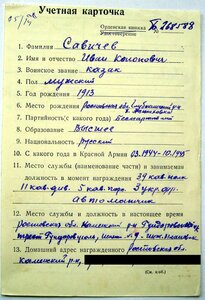 Учетная карточка
Орденская книжка
Удостоверение
№ 268588
1. Фамилия Савичев
2. Имя и отчество Иван Кононович
3. Воинское звание казак
4. Пол мужской
5. Год рождения 1913
6. Место рождения Ростовская обл.
7. Партийность (с какого года) Беспартийный
8. Образование Высшее
9. Национальность русский
10. С какого года в Красной Армии 03.1944-10.1945
11. Место службы (наименование части) и занимаемая
должность в момент награждения 39 кав. полк
11 кав. див. 5 кав. кор. 3 укр. фр.
12. Место службы и должность в настоящее время
Ростовская обл. Каменский р-н
трест
13. Домашний адрес награжденного Ростовская обл.
Каменский р-н,
(См. на об.)